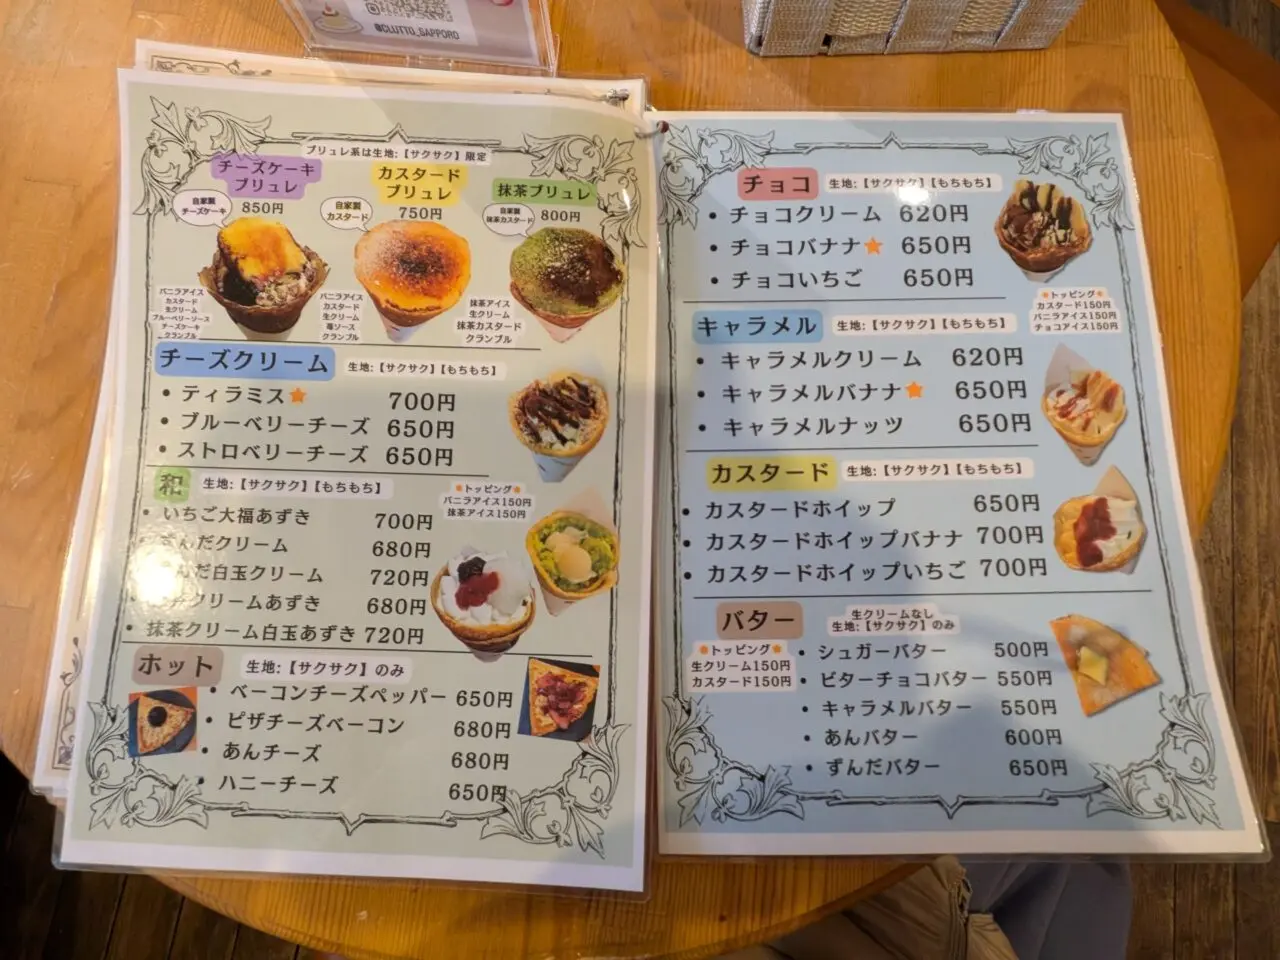 @CLUTTO_SAPPORO
ブリュレ系は生地:【サクサク】限定
チーズケーキ
ブリュレ
自家製
チーズケーキ
850円
バニラアイス
カスタード
生クリーム
ブルーベリーソース
チーズケーキ
クランブル
カスタード
ブリュレ
自家製
カスタード
750円
バニラアイス
カスタード
生クリーム
苺ソース
クランブル
抹茶ブリュレ
自家製
抹茶カスタード
800円
抹茶アイス
生クリーム
抹茶カスタード
クランブル
チーズクリーム 生地:【サクサク】【もちもち】
・ティラミス★ 700円
・ブルーベリーチーズ 650円
・ストロベリーチーズ 650円
和 生地:【サクサク】【もちもち】
★トッピング★
バニラアイス150円
抹茶アイス150円
・いちご大福あずき 700円
ずんだクリーム 680円
だ白玉クリーム 720円
クリームあずき 680円
・抹茶クリーム白玉あずき 720円
ホット 生地:【サクサク】のみ
・ベーコンチーズペッパー 650円
・ピザチーズベーコン 680円
・あんチーズ 680円
・ハニーチーズ 650円
チョコ 生地:【サクサク】【もちもち】
・チョコクリーム 620円
・チョコバナナ★ 650円
・チョコいちご 650円
★トッピング★
カスタード150円
バニラアイス150円
チョコアイス150円
キャラメル 生地:【サクサク】【もちもち】
・キャラメルクリーム 620円
・キャラメルバナナ★ 650円
・キャラメルナッツ 650円
カスタード 生地:【サクサク】【もちもち】
・カスタードホイップ 650円
・カスタードホイップバナナ 700円
・カスタードホイップいちご 700円
バター
生クリームなし
生地:【サクサク】のみ
★トッピング★
生クリーム150円
カスタード150円
・シュガーバター 500円
・ビターチョコバター 550円
・キャラメルバター 550円
・あんバター 600円
・ずんだバター 650円